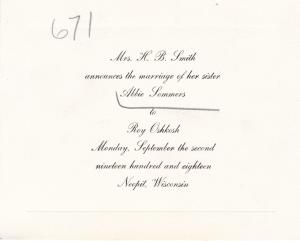 671
Mrs. H. B. Smith
announces the marriage of her sister
Abbie Sommers
to
Roy Oshkosh
Monday, September the second
nineteen hundred and eighteen
Neopit, Wisconsin